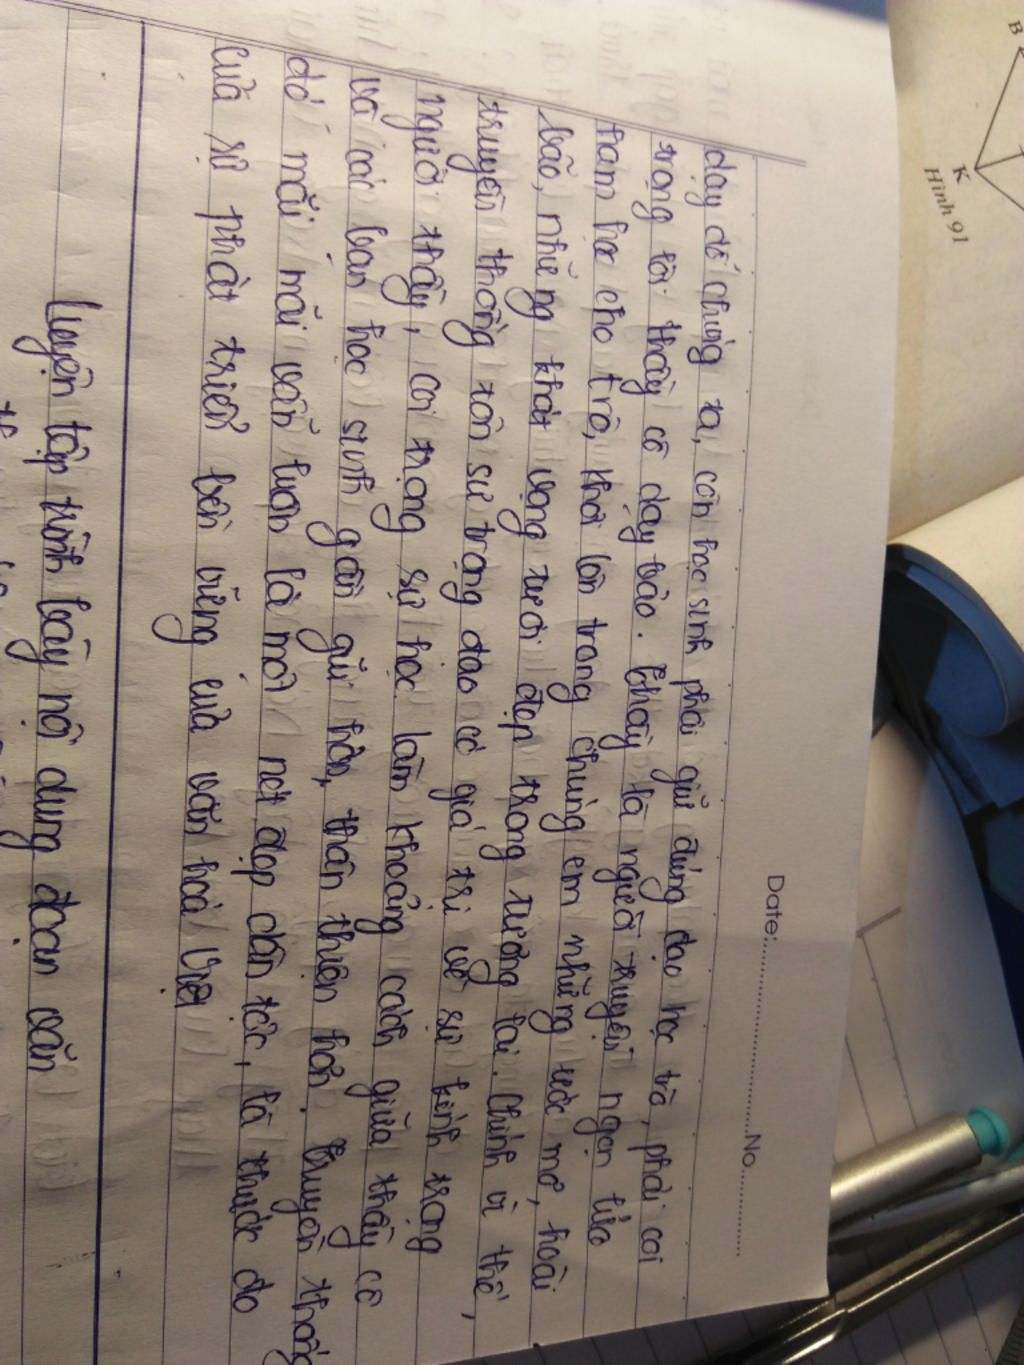 Date:........................No..............
dạy dỗ chúng ta, còn học sinh phải giữ đúng đạo học trò, phải coi
trọng lời thầy cô dạy bảo. Thầy là người truyền ngọn lửa
ham học cho trò, khơi lên trong chúng em những ước mơ, hoài
bão, những khát vọng tươi đẹp trong tương lai. Chính vì thế,
truyền thống tôn sư trọng đạo có giá trị về sự kính trọng
người thầy, coi trọng sự học. làm khoảng cách giữa thầy cô
và các bạn học sinh gần gũi hơn, thân thiện hơn. truyền thống
đó mãi mãi vẫn luôn là một nét đẹp dân tộc, là thước đo
của sự phát triển bền vững của văn hoá Việt
Luyện tập trình bày nội dung đoạn văn
B
K
Hình 91